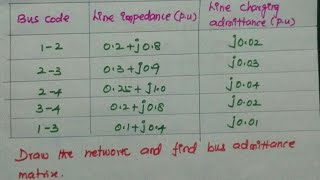 Bus code Line impedance (P.u) Line charging admittance (P.u)
1-2 0.2+j0.8 j0.02
2-3 0.3+j0.9 j0.03
2-4 0.25+j1.0 j0.04
3-4 0.2+j0.8 j0.02
1-3 0.1+j0.4 j0.01
Draw the network and find bus admittance
matrix.